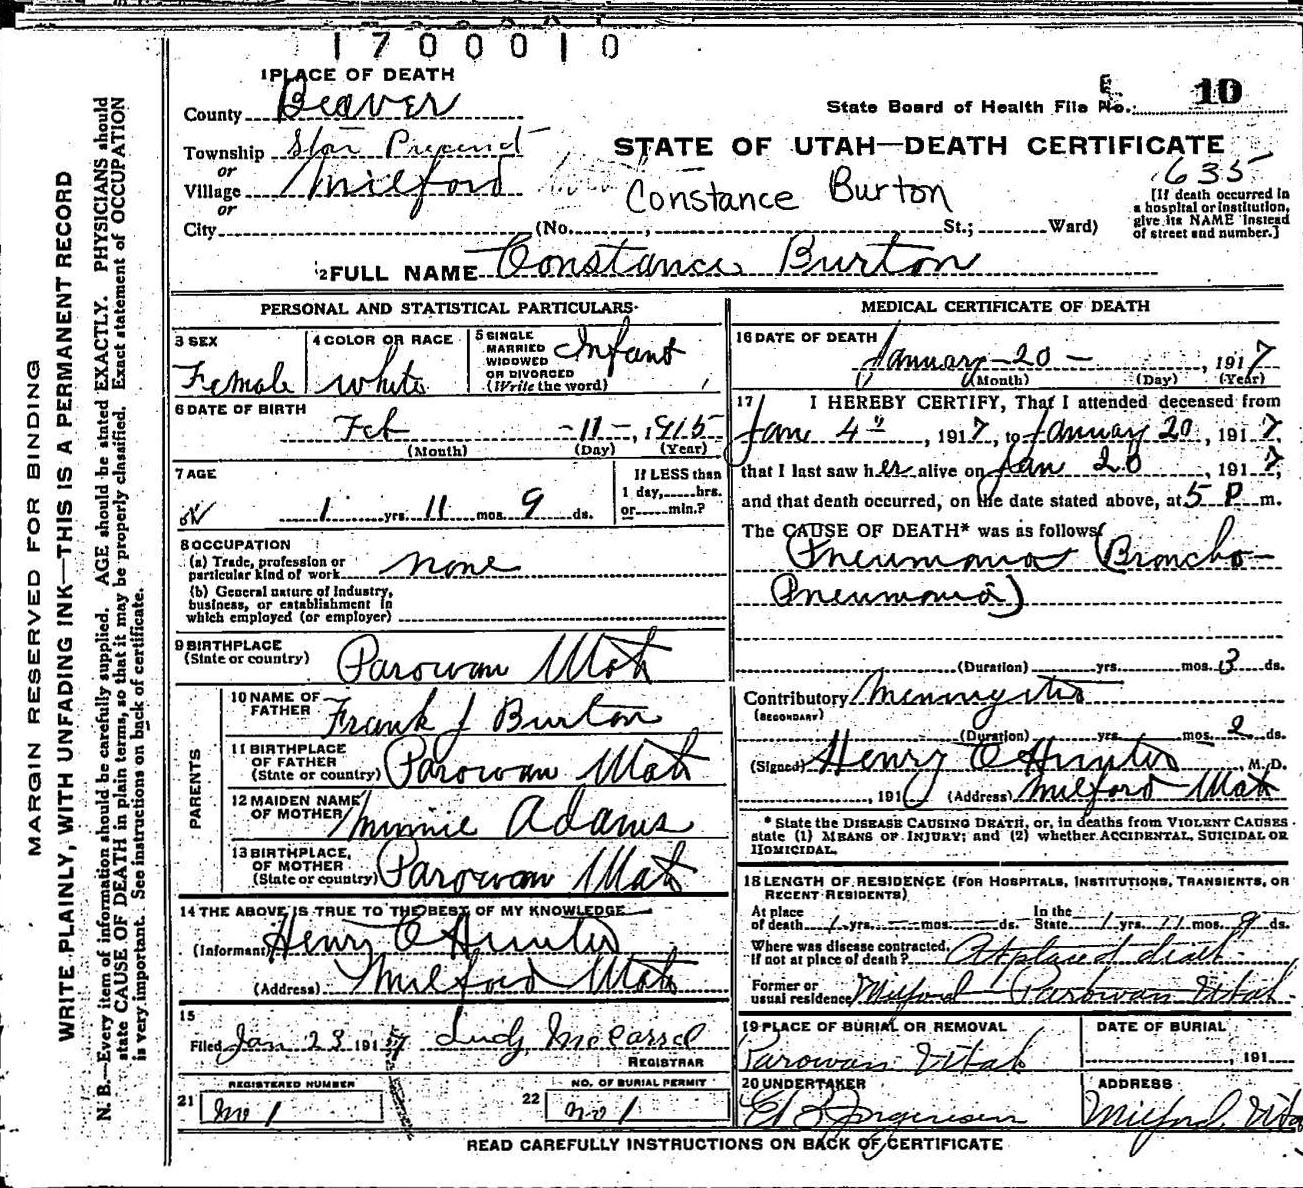 1700010
1 PLACE OF DEATH
County Beaver
State Board of Health File No.: 10
Township Star Precinct
STATE OF UTAH—DEATH CERTIFICATE
or
Village Milford
Constance Burton
635
or
[If death occurred in
a hospital or institution,
give its NAME instead
of street and number.]
City (No. , St.; Ward)
2 FULL NAME Constance Burton
PERSONAL AND STATISTICAL PARTICULARS
3 SEX
Female
4 COLOR OR RACE
White
5 SINGLE
MARRIED
WIDOWED
OR DIVORCED
(Write the word)
Infant
6 DATE OF BIRTH
Feb -11-, 1915
(Month) (Day) (Year)
7 AGE
1 yrs. 11 mos. 9 ds.
If LESS than
1 day, hrs.
or min.?
8 OCCUPATION
(a) Trade, profession or
particular kind of work none
(b) General nature of industry,
business, or establishment in
which employed (or employer)
9 BIRTHPLACE
(State or country) Parowan Utah
PARENTS
10 NAME OF
FATHER Frank J Burton
11 BIRTHPLACE
OF FATHER
(State or country) Parowan Utah
12 MAIDEN NAME
OF MOTHER Minnie Adams
13 BIRTHPLACE,
OF MOTHER
(State or country) Parowan Utah
14 THE ABOVE IS TRUE TO THE BEST OF MY KNOWLEDGE
(Informant) Henry C Hunter
(Address) Milford Utah
15
Filed Jan 23 1917
REGISTRAR
REGISTERED NUMBER
21 No 1
NO. OF BURIAL PERMIT
22 No 1
MEDICAL CERTIFICATE OF DEATH
16 DATE OF DEATH
January-20- , 1917
(Month) (Day) (Year)
17 I HEREBY CERTIFY, That I attended deceased from
Jan 4", 1917, to January 20, 1917,
that I last saw her alive on Jan 20, 1917,
and that death occurred, on the date stated above, at 5 P m.
The CAUSE OF DEATH* was as follows:
Pneumonia (Broncho-
Pneumonia)
(Duration) yrs. mos. 3 ds.
Contributory Meningitis
(SECONDARY)
(Duration) yrs. mos. 2 ds.
(Signed) Henry C Hunter, M.D.
, 191 (Address) Milford Utah
* State the DISEASE CAUSING DEATH, or, in deaths from VIOLENT CAUSES
state (1) MEANS OF INJURY; and (2) whether ACCIDENTAL, SUICIDAL OR
HOMICIDAL.
18 LENGTH OF RESIDENCE (FOR HOSPITALS, INSTITUTIONS, TRANSIENTS, OR
RECENT RESIDENTS)
At place
of death 1 yrs. mos. ds. In the
State 1 yrs. 11 mos. 9 ds.
Where was disease contracted,
if not at place of death? At place of death
Former or
usual residence Milford Parowan Utah
19 PLACE OF BURIAL OR REMOVAL
Parowan Utah
DATE OF BURIAL
, 191
20 UNDERTAKER
ADDRESS
Milford, Utah
READ CAREFULLY INSTRUCTIONS ON BACK OF CERTIFICATE
MARGIN RESERVED FOR BINDING
WRITE PLAINLY, WITH UNFADING INK—THIS IS A PERMANENT RECORD
N. B.—Every item of information should be carefully supplied. AGE should be stated EXACTLY. PHYSICIANS should
state CAUSE OF DEATH in plain terms, so that it may be properly classified. Exact statement of OCCUPATION
is very important. See instructions on back of certificate.